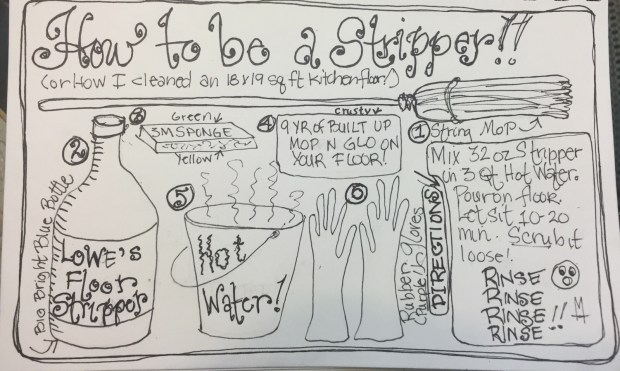 How to be a Stripper!!
(or How I cleaned an 18x19 sq ft kitchen floor!)
① String Mop
②
Big Bright Blue Bottle
LOWE'S
Floor
Stripper
③
Green
3M SPONGE
Yellow
④
crusty
9 YR of BUILT UP
MOP N GLO ON
YOUR FLOOR!
⑤
Hot
Water!
⑥
Rubber Gloves
(Purple)
DIRECTIONS
Mix 32 oz Stripper
in 3 qt Hot Water.
Pour on floor.
Let sit 10-20
min. Scrub it
loose!
RINSE
RINSE
RINSE
RINSE!!